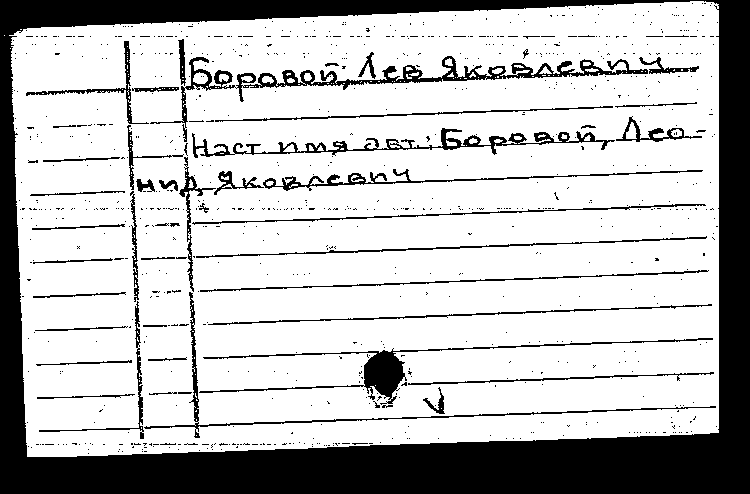 Боровой, Лев Яковлевич
Наст имя авт.: Боровой, Лео-
нид Яковлевич
V